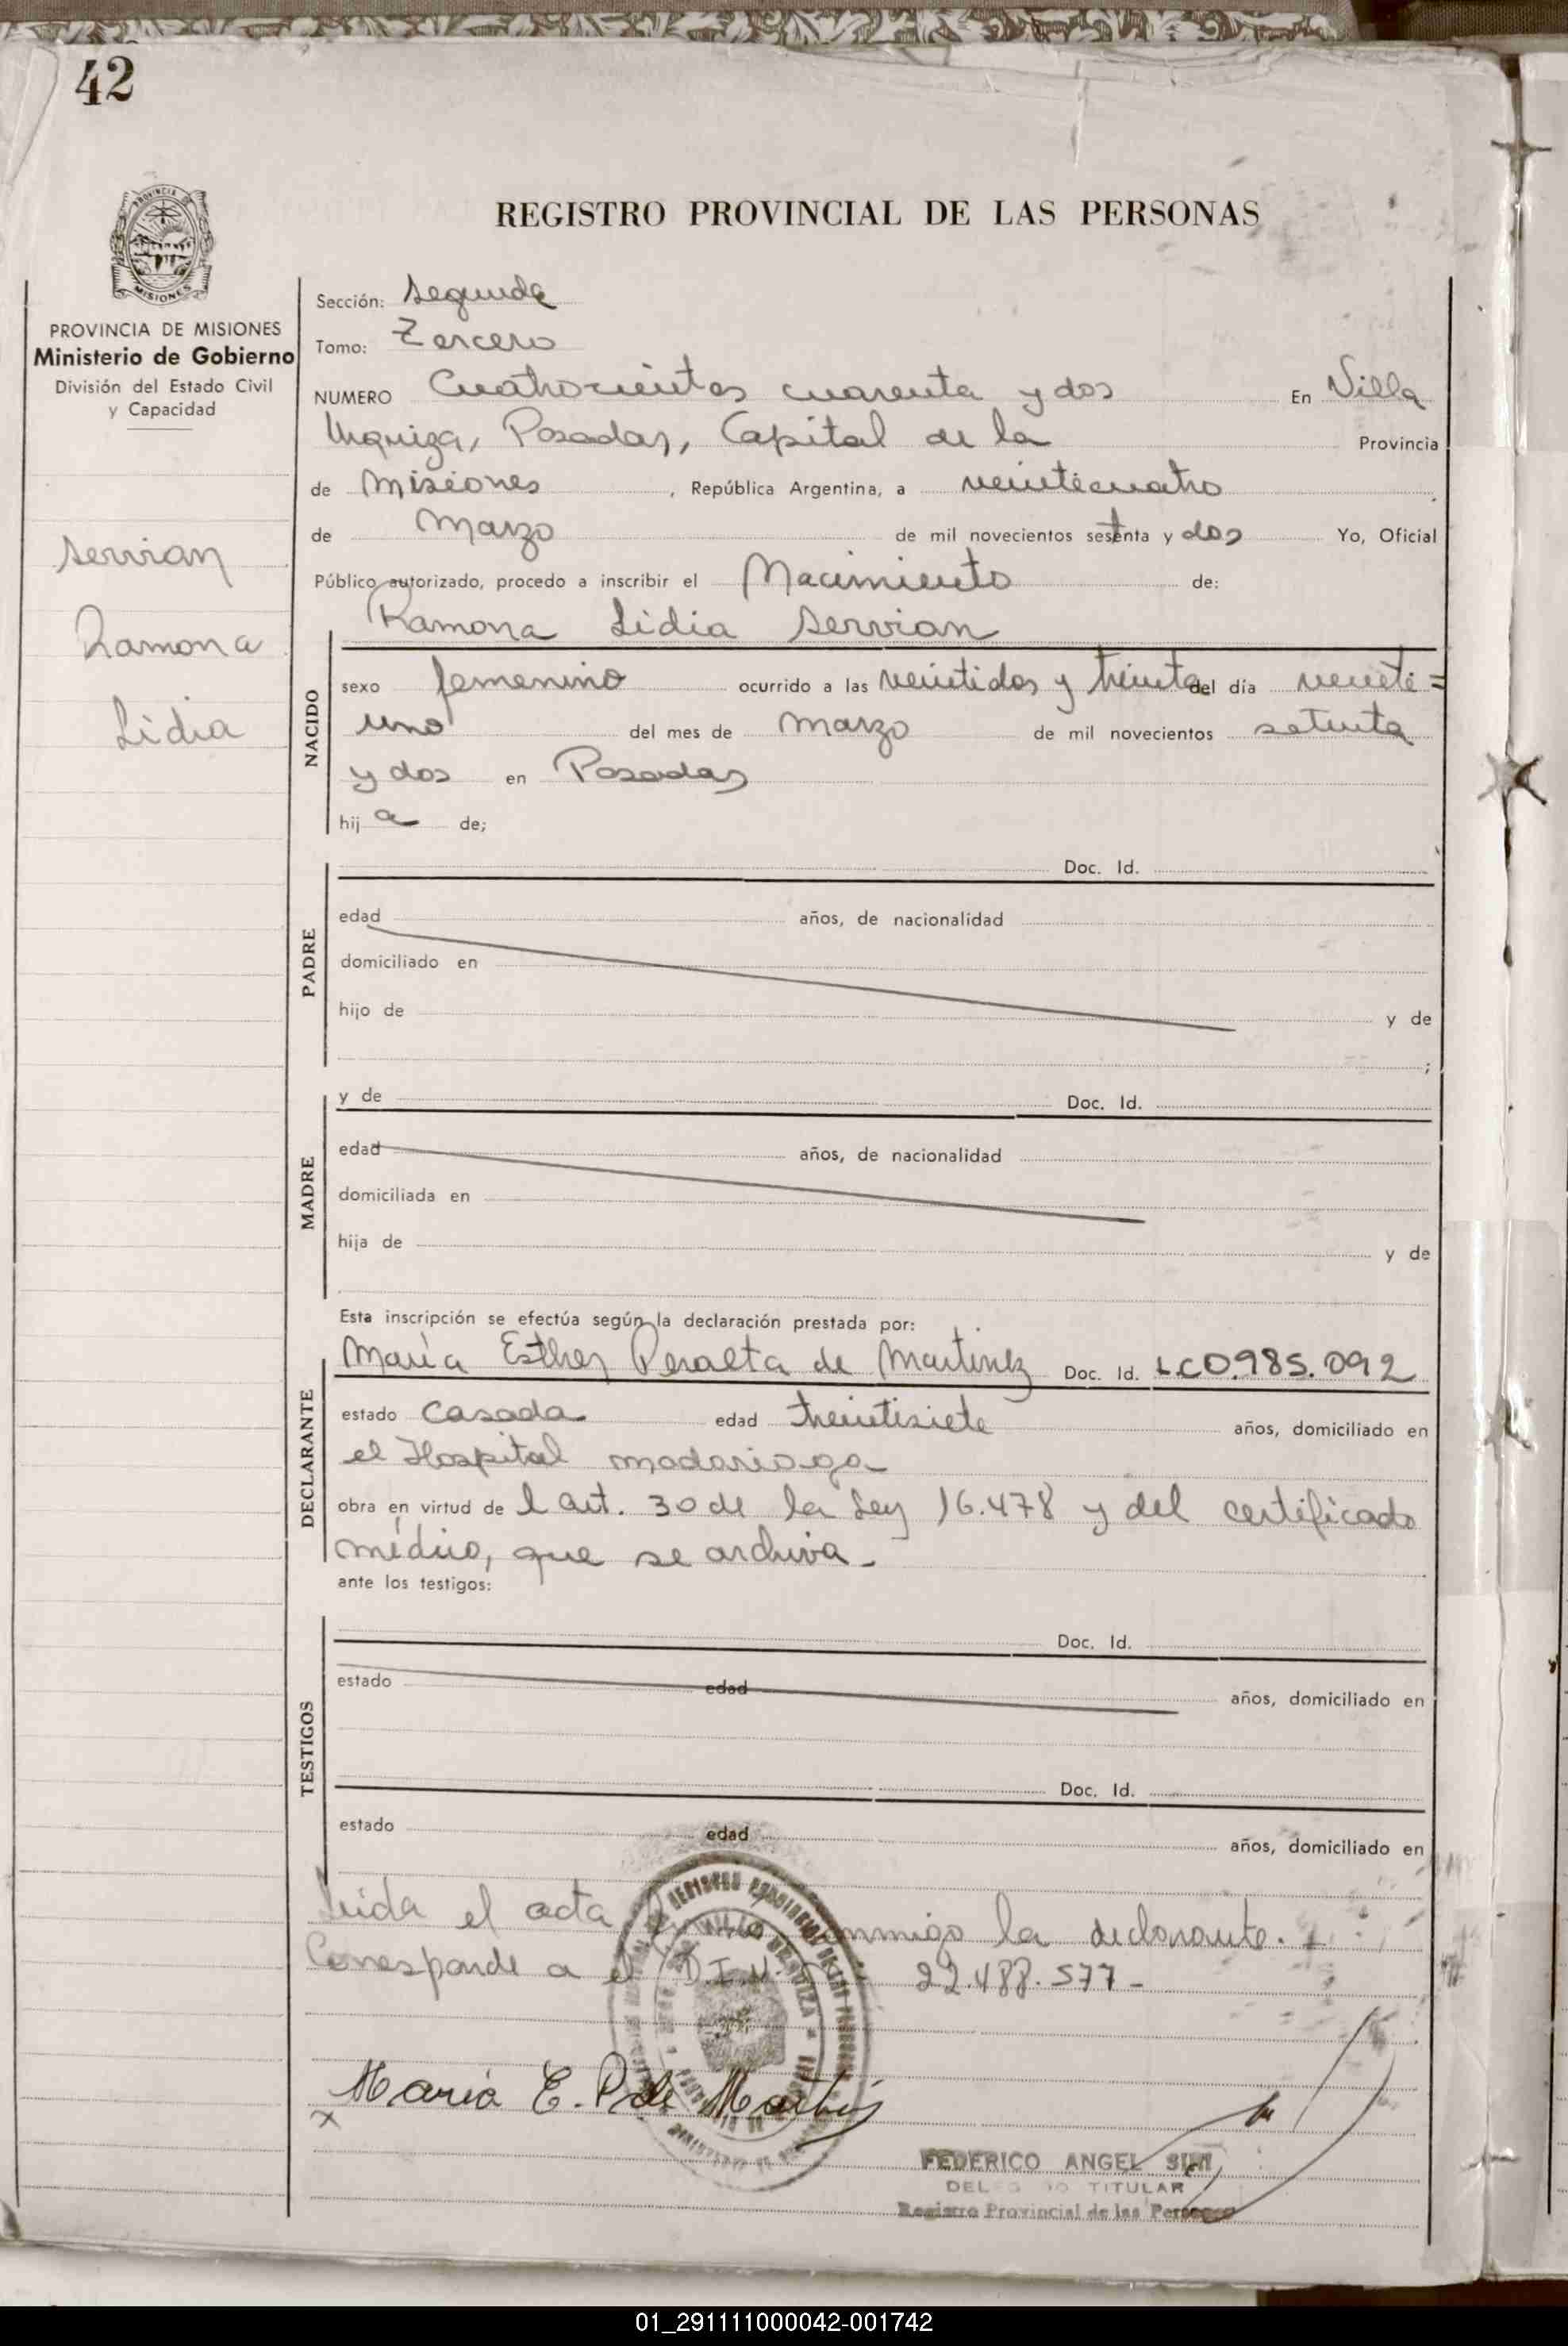 42
PROVINCIA DE MISIONES
PROVINCIA DE MISIONES
Ministerio de Gobierno
División del Estado Civil
y Capacidad
Servian
Ramona
Lidia
REGISTRO PROVINCIAL DE LAS PERSONAS
Sección: Segunda
Tomo: Tercero
NUMERO Cuatrocientos cuarenta y dos En Villa
Urquiza, Posadas, Capital de la Provincia
de Misiones, República Argentina, a veinticuatro
de Marzo de mil novecientos setenta y dos Yo, Oficial
Público autorizado, procedo a inscribir el Nacimiento de:
Ramona Lidia Servian
NACIDO
sexo femenino ocurrido a las veintidos y treinta del día veinti=
uno del mes de Marzo de mil novecientos setenta
y dos en Posadas
hij a de;
PADRE
Doc. Id.
edad años, de nacionalidad
domiciliado en
hijo de y de
;
MADRE
y de Doc. Id.
edad años, de nacionalidad
domiciliada en
hija de y de
Esta inscripción se efectúa según la declaración prestada por:
DECLARANTE
María Esther Peralta de Martinez Doc. Id. LC0.985.092
estado Casada edad treintisiete años, domiciliado en
el Hospital Madariaga
obra en virtud de l art. 30 de la Ley 16.478 y del certificado
médico, que se archiva.
ante los testigos:
TESTIGOS
Doc. Id.
estado edad años, domiciliado en
Doc. Id.
estado edad años, domiciliado en
Leida el acta conmigo la declarante.
Corresponde a el D.I.N. 22.488.577-
María E. P de Martinez
FEDERICO ANGEL
DELEGADO TITULAR
Registro Provincial de las Personas
01_291111000042-001742